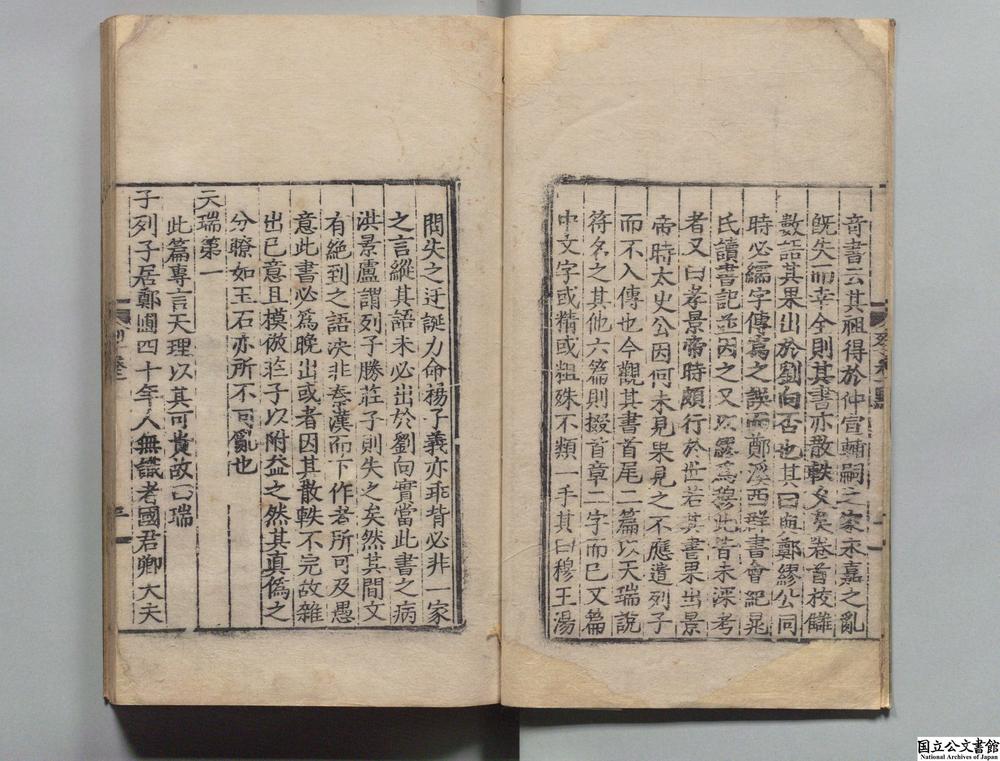 奇書云其祖得於仲宣輔嗣之家永嘉之亂
既失而幸全則其書亦散軼久矣卷首校讎
數語其果出於劉向否也其曰與鄭繆公同
時必繻字傳寫之誤而鄭溪西群書會紀晁
氏讀書記並因之又以繆爲穆此皆未深考
者又曰孝景帝時頗行於世若其書果出景
帝時太史公因何未見果見之不應遺列子
而不入傳也今觀其書首尾二篇以天瑞說
符名之其他六篇則掇首章二字而已又篇
中文字或精或粗殊不類一手其曰穆王湯
問失之迂誕力命楊子義亦乖背必非一家
之言縱其語未必出於劉向實當此書之病
洪景盧謂列子勝莊子則失之矣然其間文
有絶到之語决非秦漢而下作者所可及愚
意此書必爲晚出或者因其散軼不完故雜
出己意且模倣莊子以附益之然其真僞之
分瞭如玉石亦所不可亂也
天瑞第一
此篇專言天理以其可貴故曰瑞
子列子居鄭圃四十年人無識者國君卿大夫
列 卷一
国立公文書館
National Archives of Japan